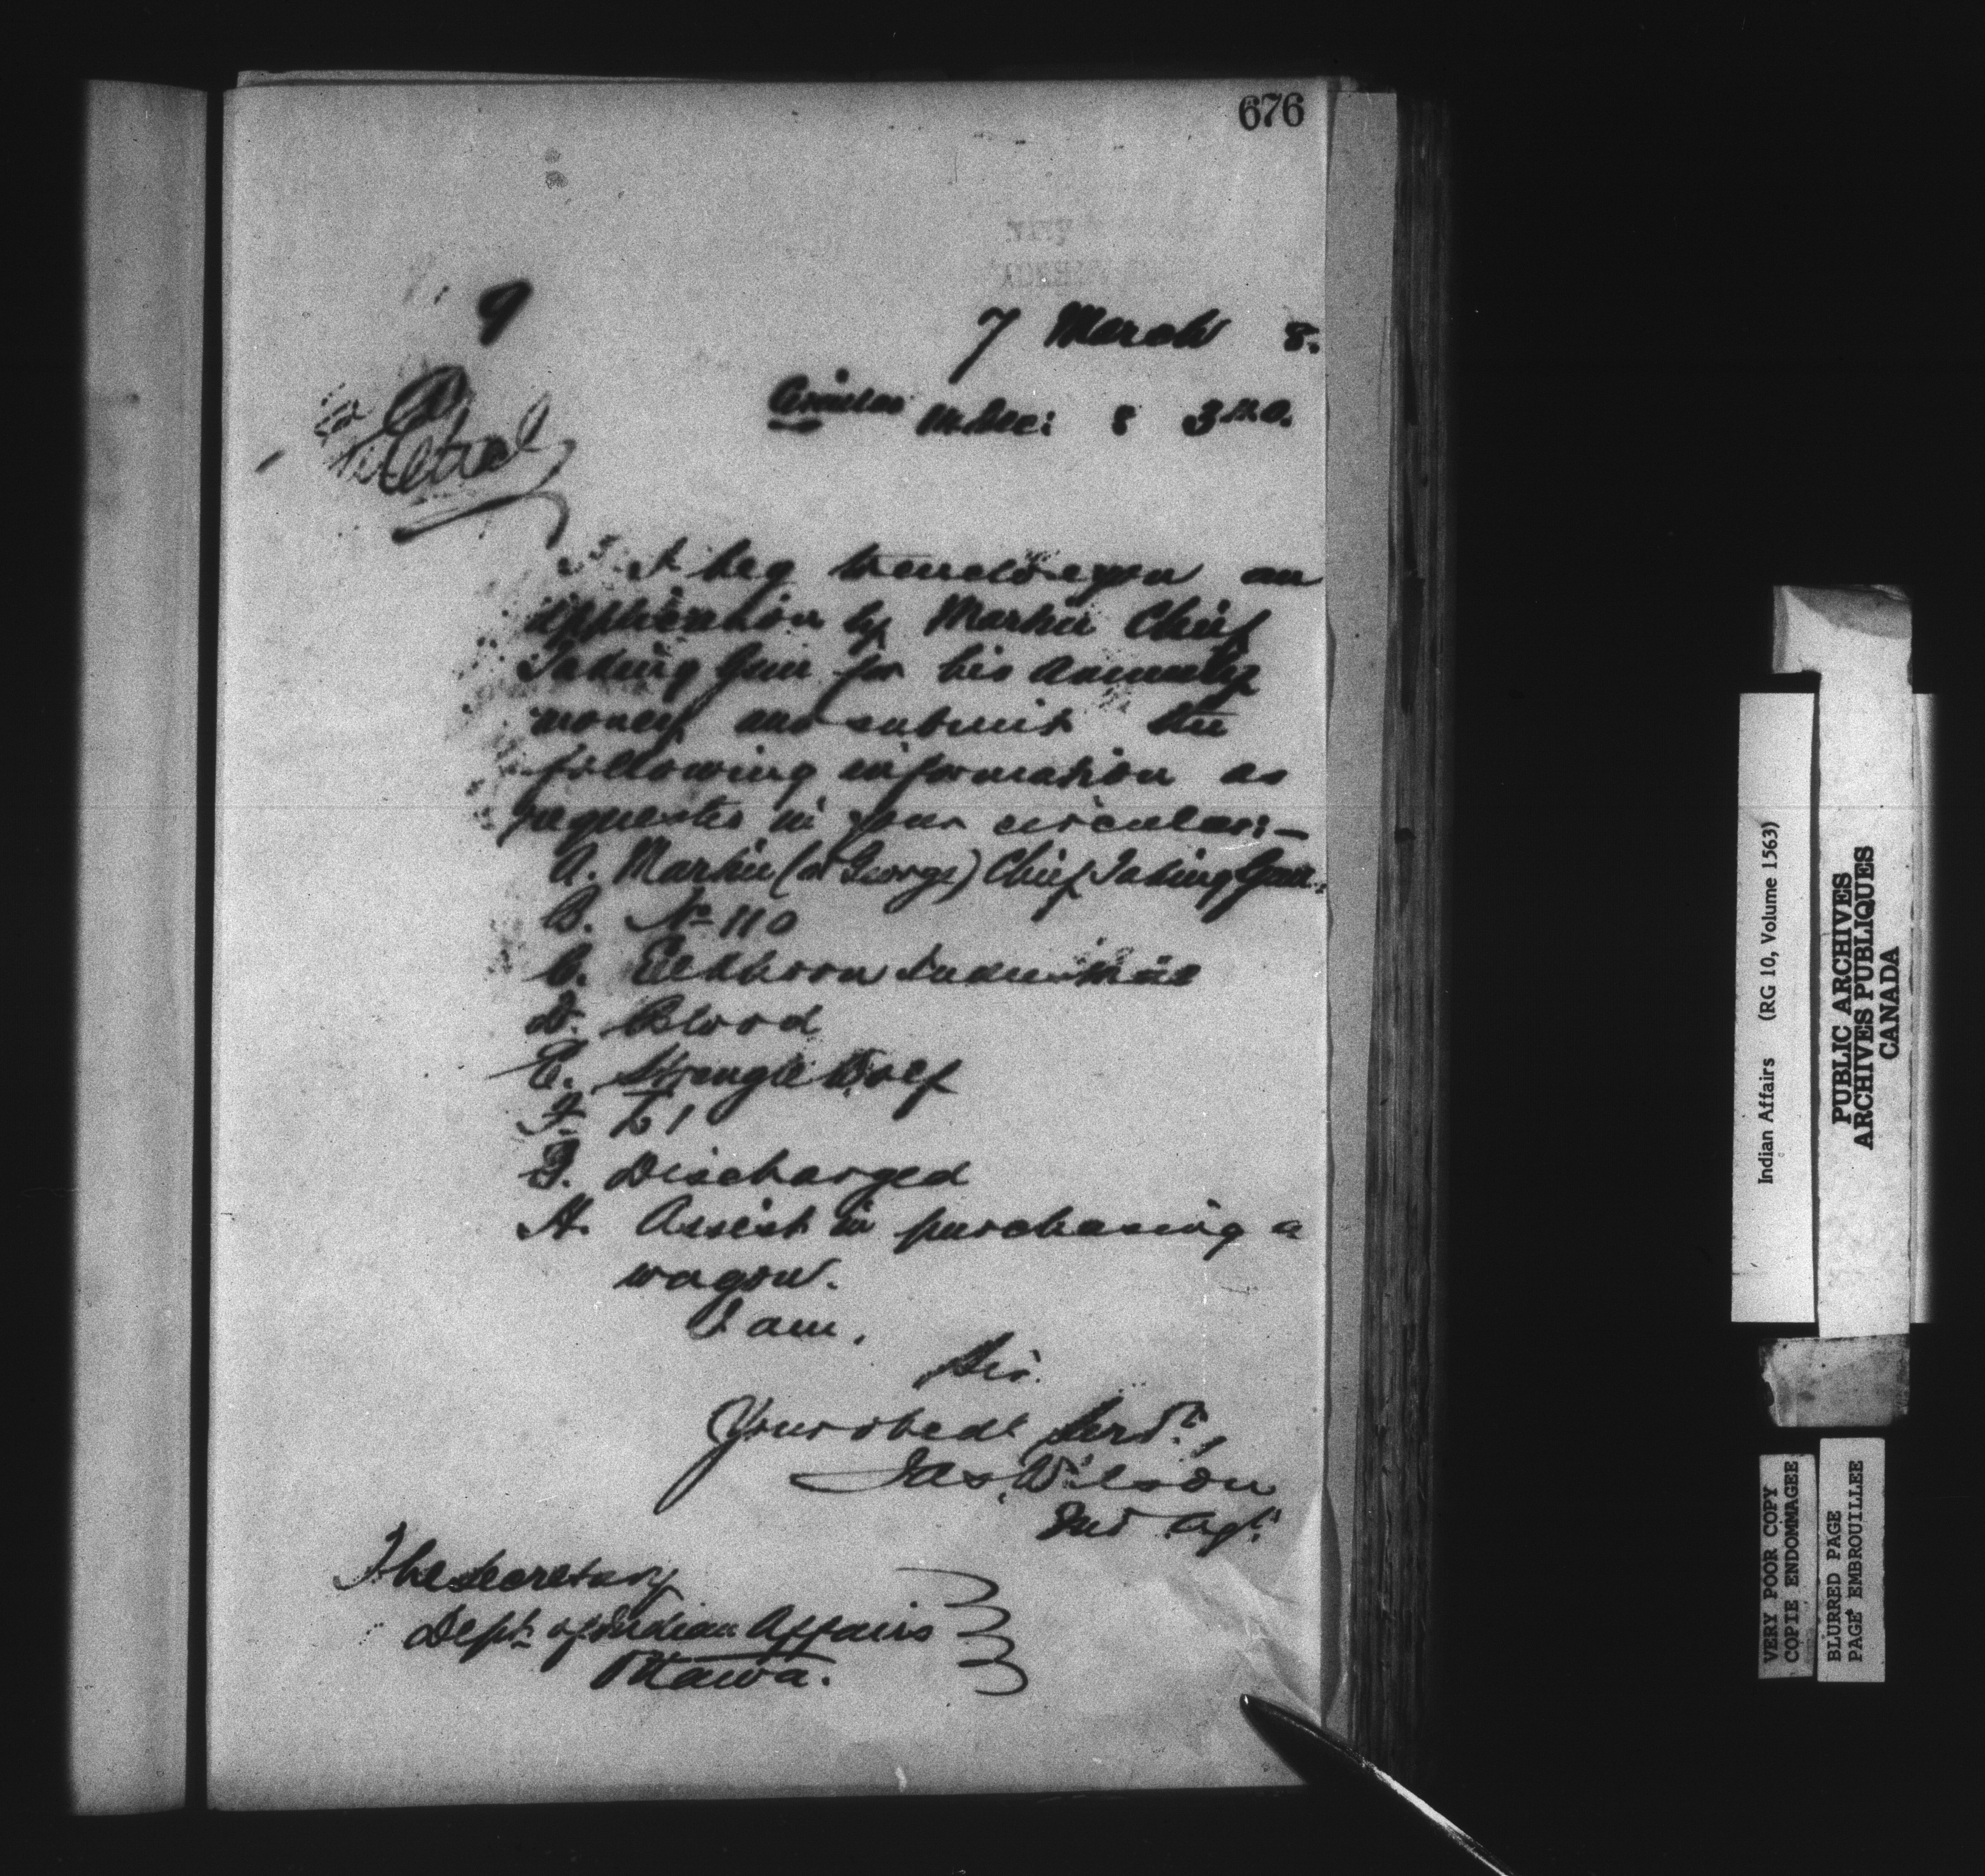 676
9
7 March 8.
Circular
I beg to enclose you an
application by Martin Chief
Taking Gun for his annuity
money and submit the
following information as
requested in your circular:—
A. Martin (or George) Chief Taking Gun.
B. No 110
C. Elkhorn Industrial
D. Blood
E. Strangle Wolf
F.
G. Discharged
H. Assist in purchasing a
wagon.
I am,
Sir.
Your obedt Servt,
Jas. Wilson
Ind Agt.
The Secretary
Dept. of Indian Affairs
Ottawa.
Indian Affairs (RG 10, Volume 1563)
PUBLIC ARCHIVES
ARCHIVES PUBLIQUES
CANADA
VERY POOR COPY
COPIE ENDOMMAGEE
BLURRED PAGE
PAGE EMBROUILLEE